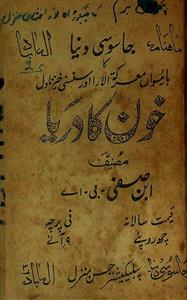 ماہنامہ جاسوسی دنیا الہ آباد
کا
بائیسواں معرکۃ الآرا اور سنسنی خیز ناول
خون کا دریا
مصنف
ابن صفی بی۔اے
قیمت سالانہ
چھ روپے
فی پرچہ
۹ آنے
جاسوسی دنیا پبلیکیشنز حسن منزل الہ آباد